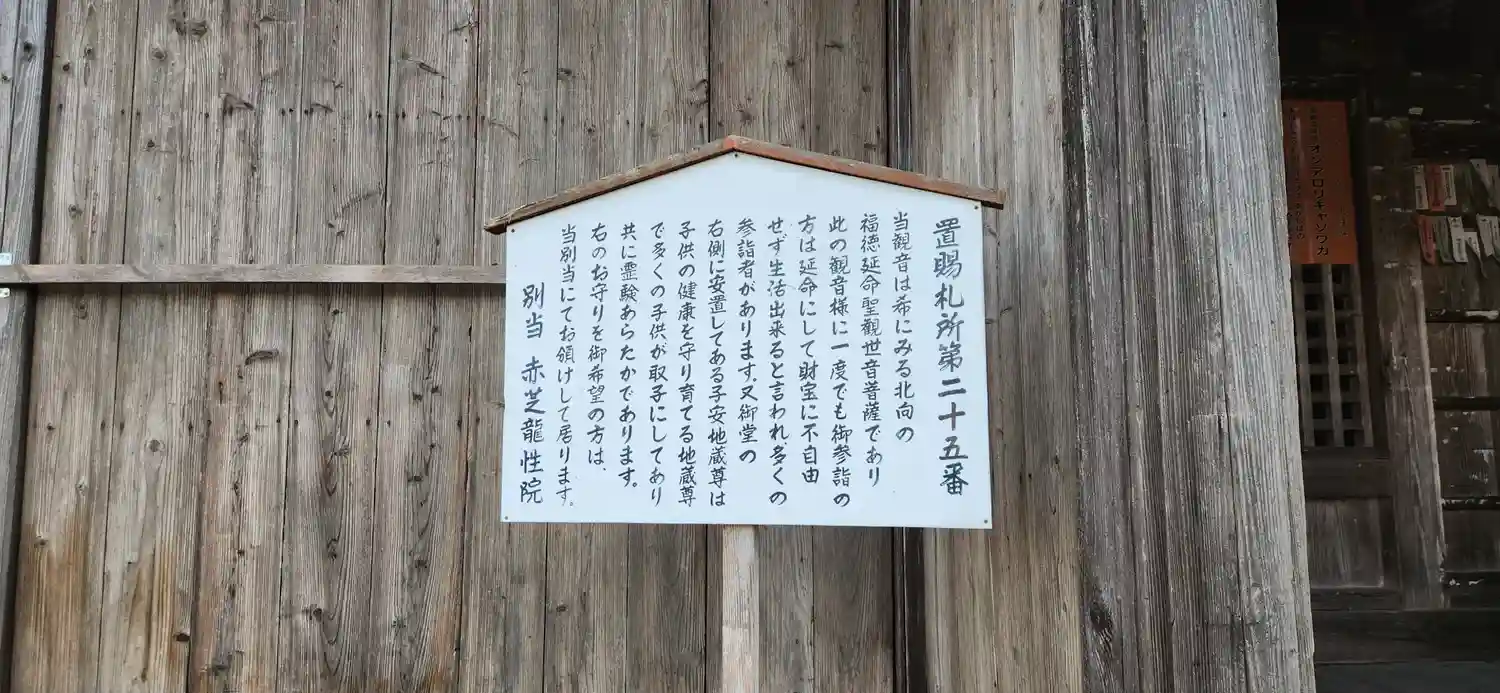 置賜札所第二十五番
当観音は希にみる北向の
福徳延命聖觀世音菩薩であり
此の観音様に一度でも御参詣の
方は延命にして財宝に不自由
せず生活出来ると言われ、多くの
参詣者があります。又御堂の
右側に安置してある子安地蔵尊は
子供の健康を守り育てる地蔵尊
で多くの子供が取子にしてあり
共に霊験あらたかであります。
右のお守りを御希望の方は、
当別当にてお頒けして居ります。
別当 赤芝龍性院
オンアロリキャソワカ